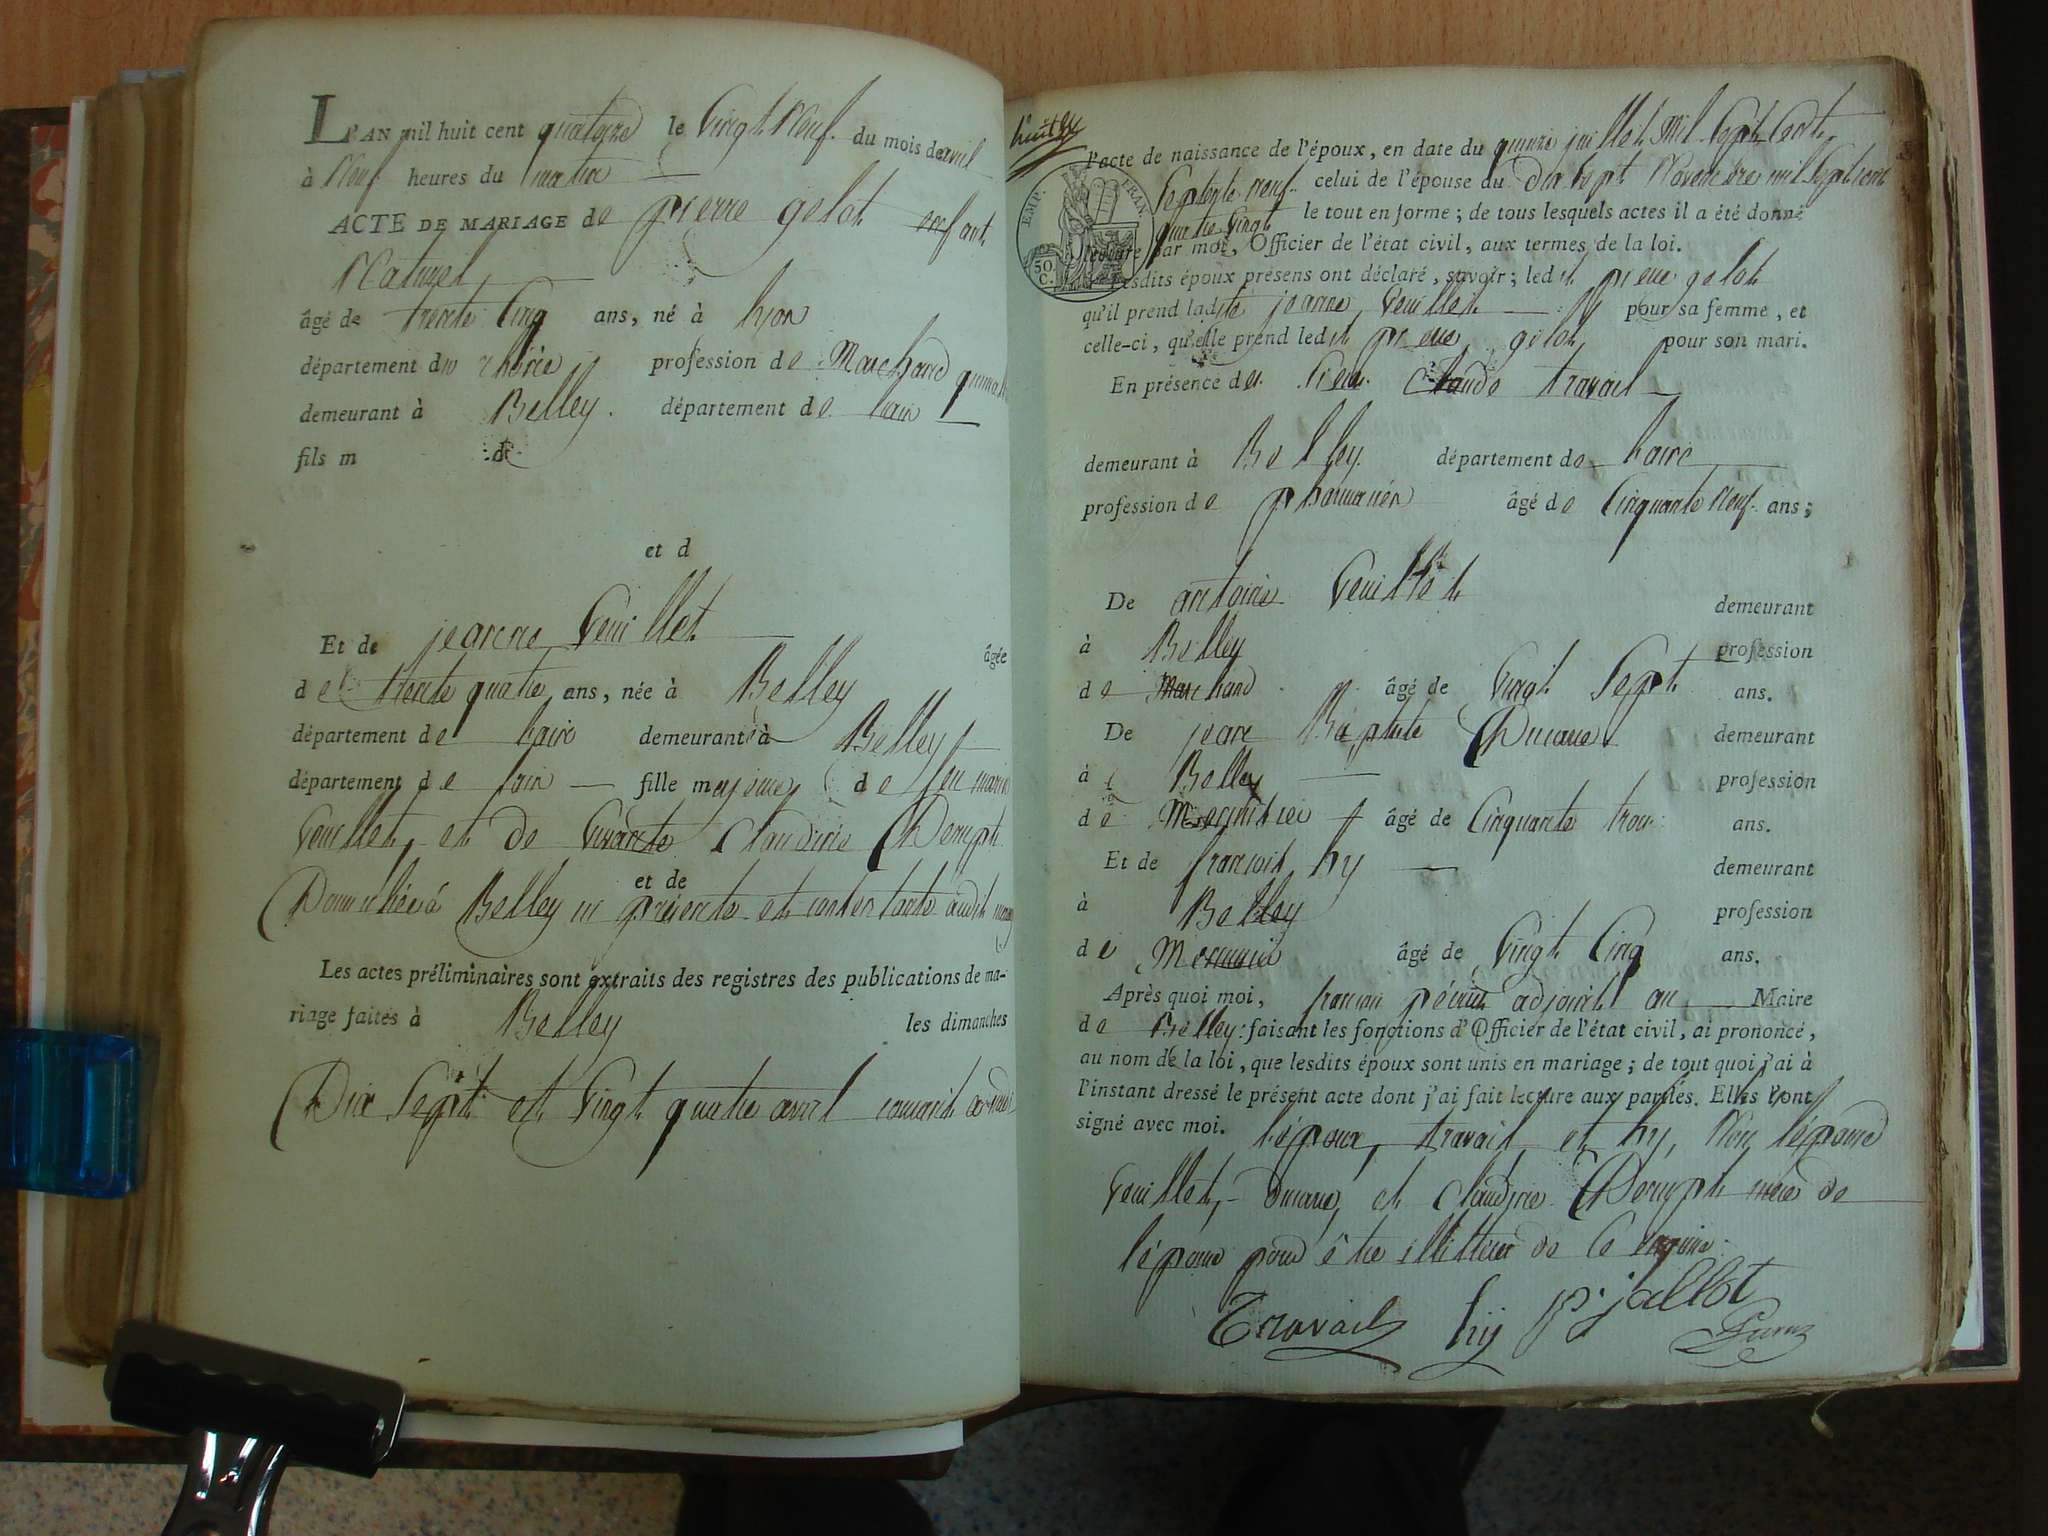 L'AN mil huit cent quatorze le vingt Neuf du mois d'avril
à Neuf heures du matin
ACTE DE MARIAGE de pierre gelot enfant
Naturel
âgé de trente Cinq ans, né à lyon
département du rhône profession de Marchand
demeurant à Belley. département de lain
fils m de
et d
Et de jeanne Veuillet âgée
de trente quatre ans, née à Belley
département de lain demeurant à Belley
département de lain fille majeure de feu
Veuillet, et de vivante Claudine Dempt
et de
Domiciliée à Belley ici présente et consentante audit
Les actes préliminaires sont extraits des registres des publications de ma-
riage faites à Belley les dimanches
Dix Sept et Vingt quatre avril courant
l'acte de naissance de l'époux, en date du quinze juillet Mil Sept Cent
Septente neuf celui de l'épouse du dix sept Novembre mil Sept cent
quatre vingt le tout en forme; de tous lesquels actes il a été donné
lecture par moi, Officier de l'état civil, aux termes de la loi.
EMP. FRAN.
50. C.
Lesdits époux présens ont déclaré, savoir; ledit pierre gelot
qu'il prend ladite jeanne Veuillet pour sa femme, et
celle-ci, qu'elle prend ledit pierre gelot pour son mari.
En présence de Claude travail
demeurant à Belley département de lain
profession de pharmacien âgé de Cinquante Neuf ans;
De antoine Veuillet demeurant
à Belley profession
de Marchand âgé de Vingt Sept ans.
De jean Baptiste demeurant
à Belley profession
de Menuisier âgé de Cinquante trois ans.
Et de françois hy demeurant
à Belley profession
de Menuisier âgé de Vingt Cinq ans.
Après quoi moi, françois adjoint au Maire
de Belley: faisant les fonctions d'Officier de l'état civil, ai prononcé,
au nom de la loi, que lesdits époux sont unis en mariage; de tout quoi j'ai à
l'instant dressé le présent acte dont j'ai fait lecture aux parties. Elles l'ont
signé avec moi. l'époux, travail et hy, Non l'épouse
Veuillet, et Claudine Dempt mère de
l'épouse pour être illitteré de Ce enquise
Travail hy p. jallot